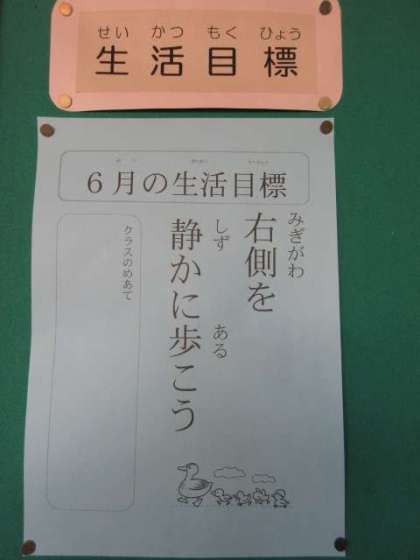 せい かつ もく ひょう
生活目標
6月の生活目標
みぎがわ
右側を
しず ある
静かに歩こう
クラスのめあて